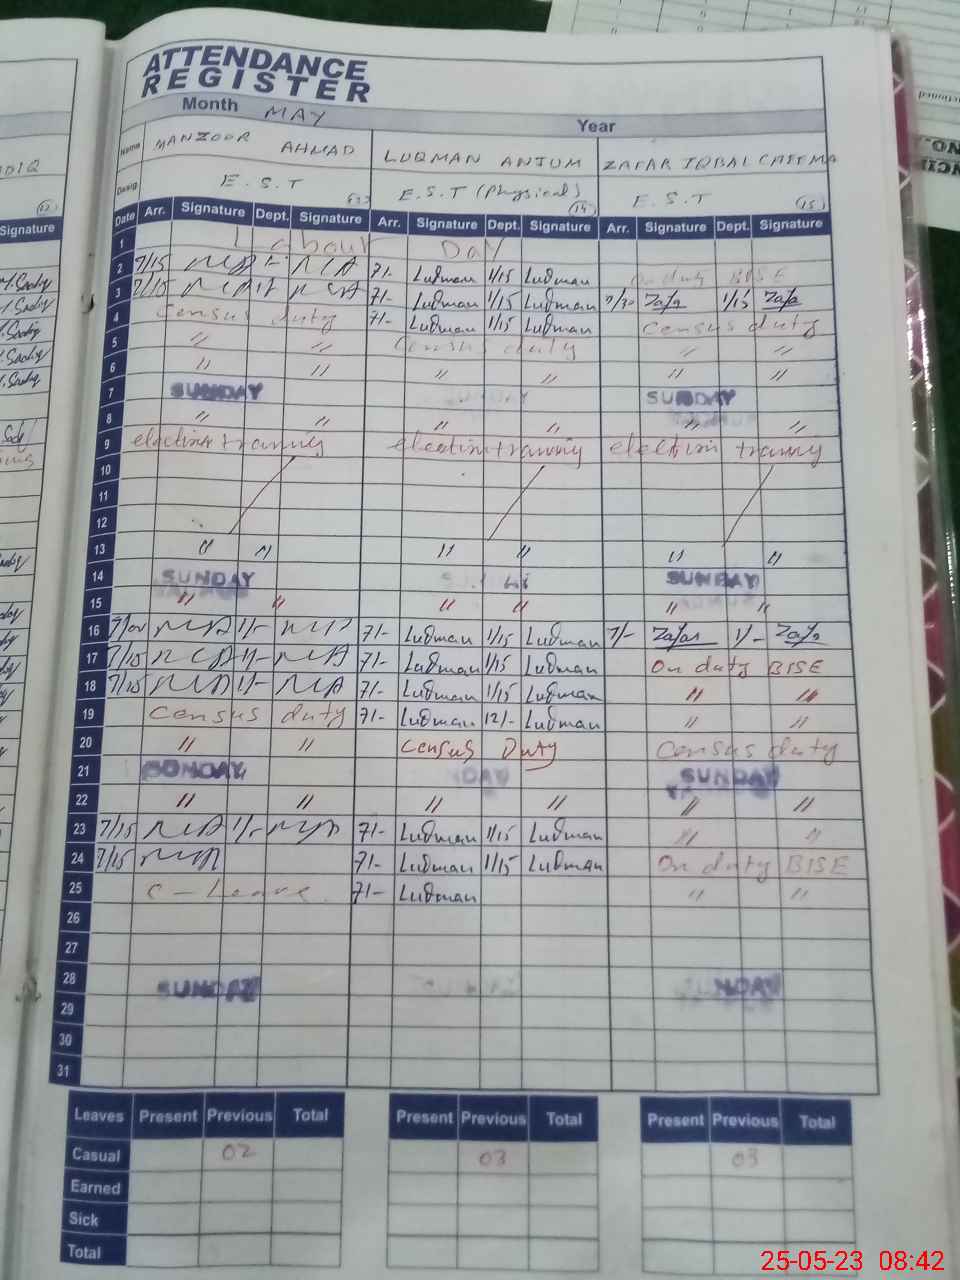 ATTENDANCE
REGISTER
Month MAY Year
Name MANZOOR AHMAD LUQMAN ANJUM ZAFAR IQBAL CHEEMA
Desig. E.S.T E.S.T (Physical) (14) E.S.T (15)
Signature Date Arr. Signature Dept. Signature Arr. Signature Dept. Signature Arr. Signature Dept. Signature
1 Labour Day
2 7/15 7/- Luqman 1/15 Luqman On duty BISE
3 7/15 7/- Luqman 1/15 Luqman 7/30 Zafar 1/15 Zafar
4 Census duty 7/- Luqman 1/15 Luqman Census duty
5 〃 〃 Census duty 〃 〃
6 〃 〃 〃 〃 〃 〃
7 SUNDAY SUNDAY
8 〃 〃 〃 〃 〃 〃
9 election training election training election training
10
11
12
13 〃 〃 〃 〃 〃 〃
14 SUNDAY SUNDAY
15 〃 〃 〃 〃 〃 〃
16 1/- 7/- Luqman 1/15 Luqman 7/- Zafar 1/- Zafar
17 7/15 1/- 7/- Luqman 1/15 Luqman On duty BISE
18 7/15 1/- 7/- Luqman 1/15 Luqman 〃 〃
19 Census duty 7/- Luqman 12/- Luqman 〃 〃
20 〃 〃 Census Duty Census duty
21 SUNDAY SUNDAY
22 〃 〃 〃 〃 〃 〃
23 7/15 1/- 7/- Luqman 1/15 Luqman 〃 〃
24 7/15 7/- Luqman 1/15 Luqman On duty BISE
25 C-Leave 7/- Luqman 〃 〃
26
27
28 SUNDAY SUNDAY
29
30
31
Leaves Present Previous Total Present Previous Total Present Previous Total
Casual 02 03 03
Earned
Sick
Total
25-05-23 08:42